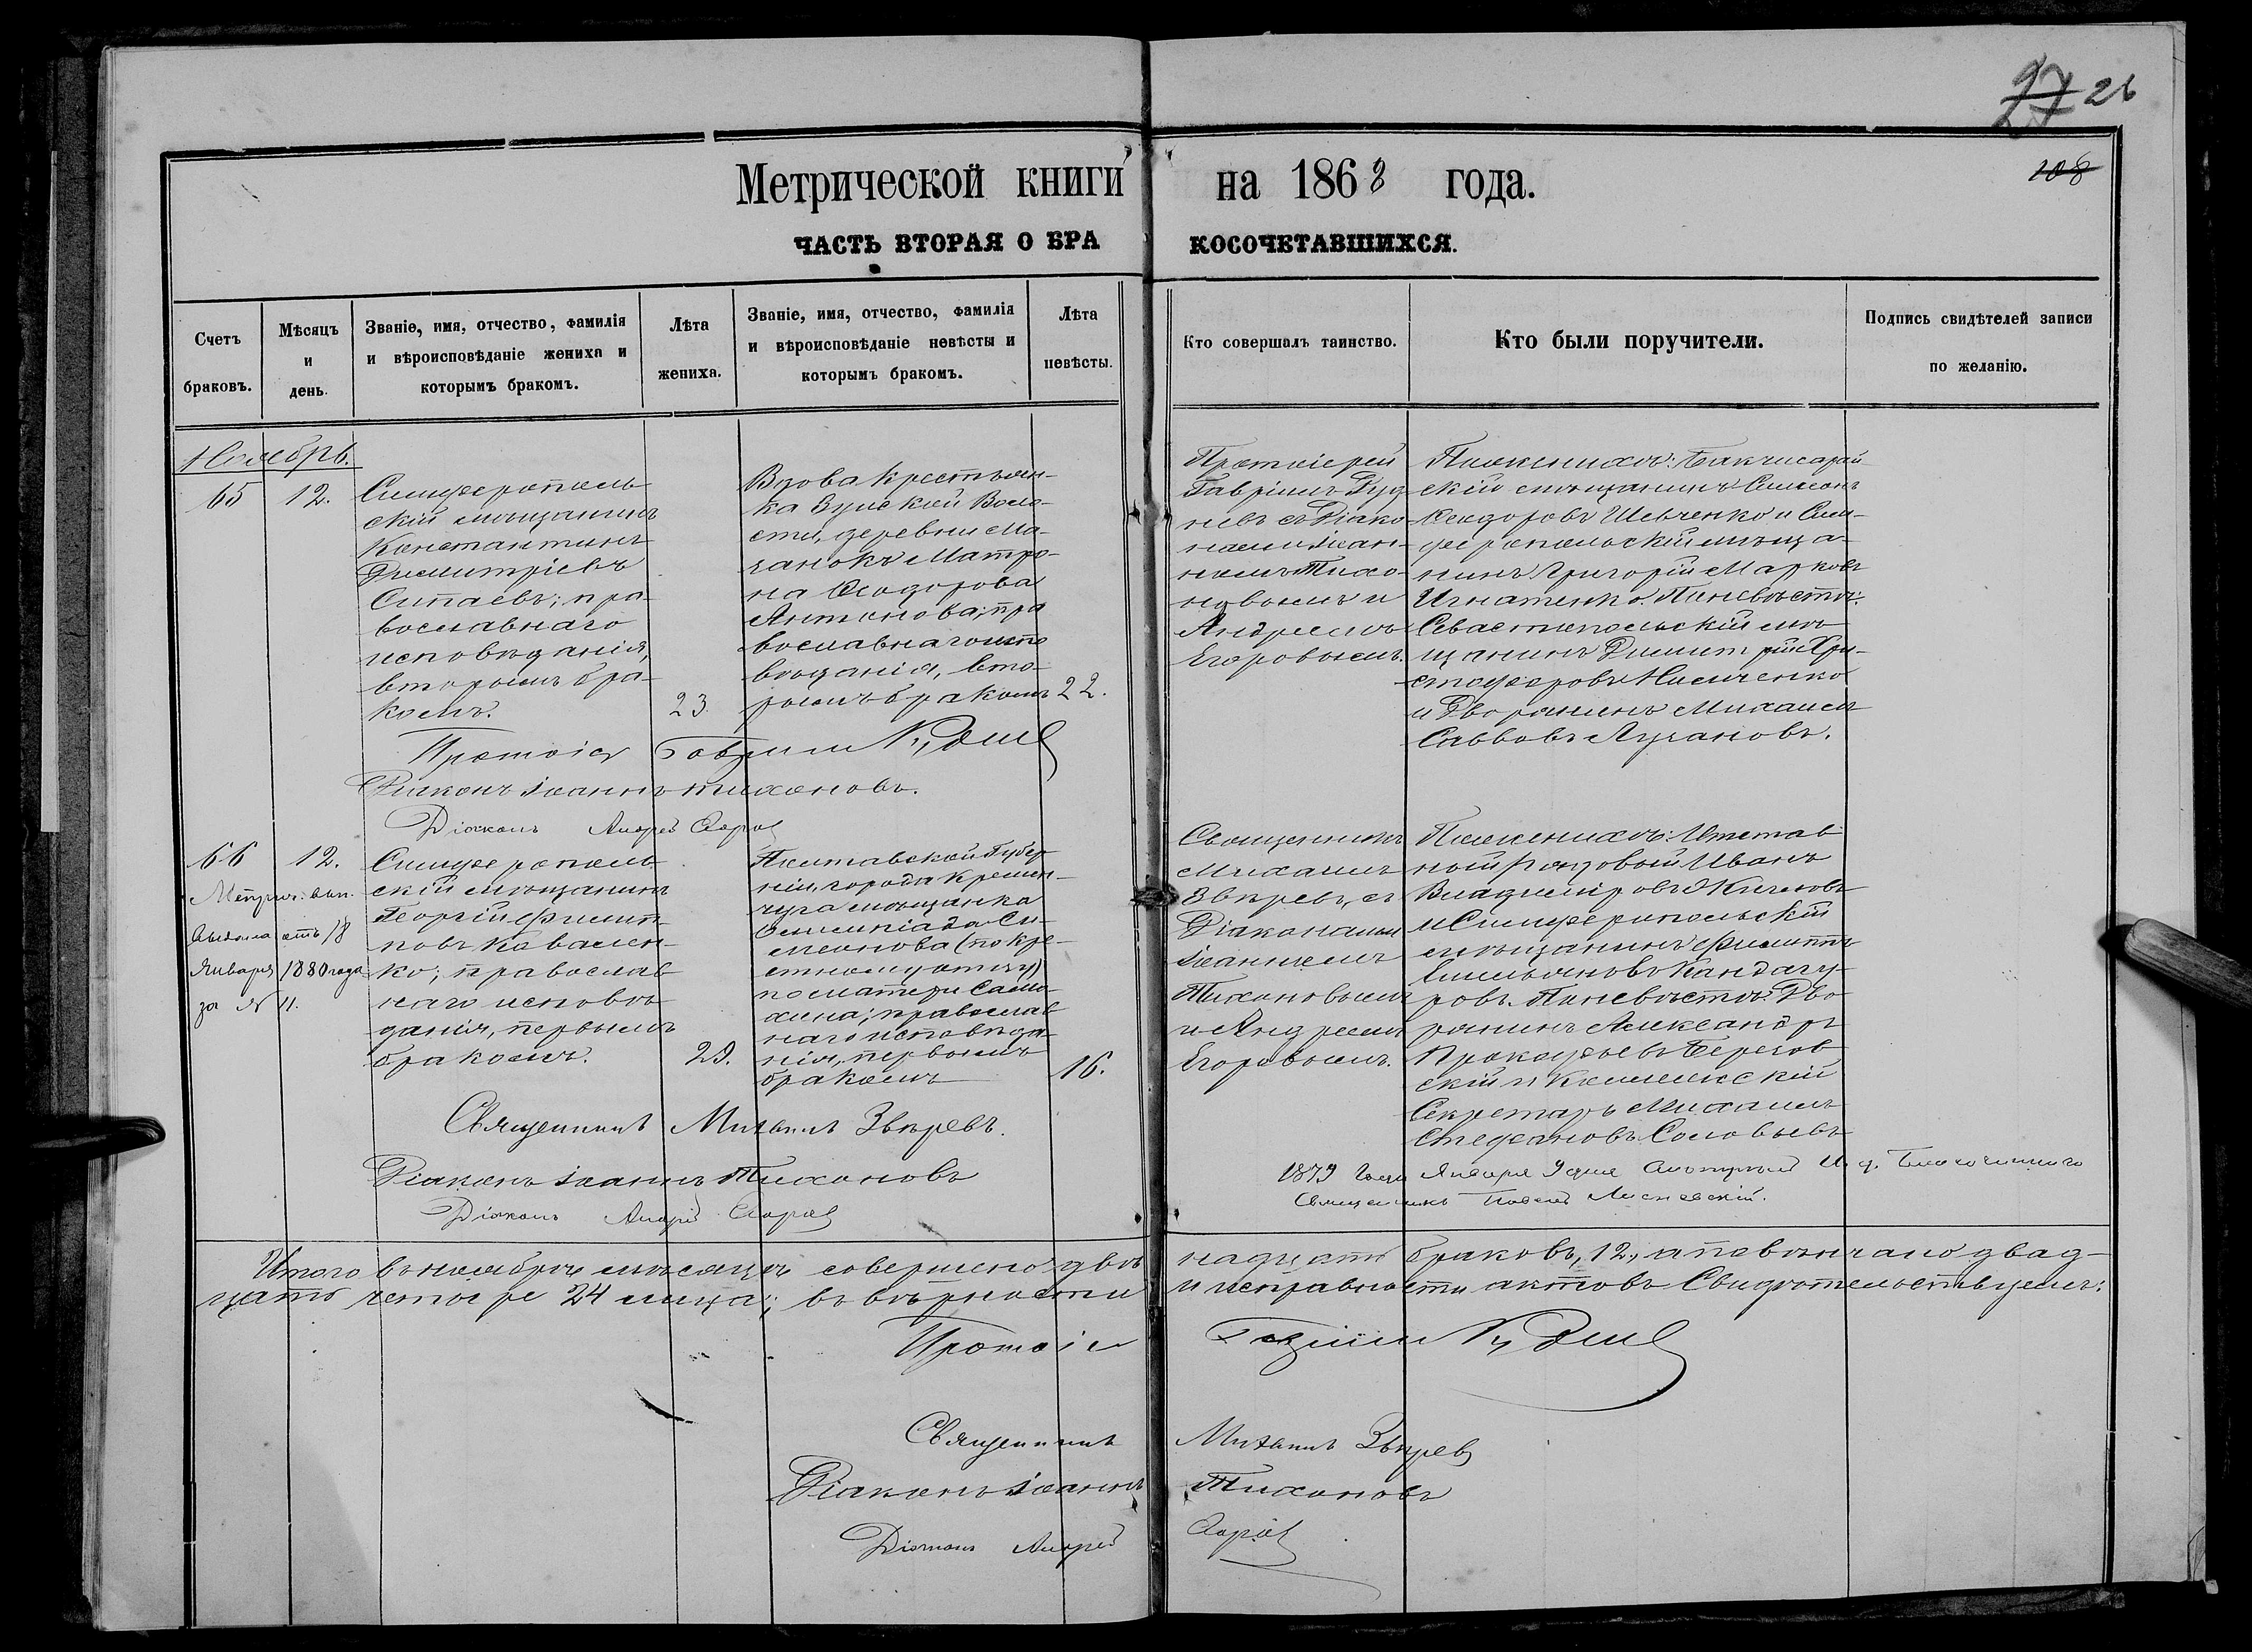 26
108
Метрической книги на 1868 года.
ЧАСТЬ ВТОРАЯ О БРАКОСОЧЕТАВШИХСЯ.
Счетъ браковъ.
Мѣсяцъ и день.
Званіе, имя, отчество, фамилія и вѣроисповѣданіе жениха и которымъ бракомъ.
Лѣта жениха.
Званіе, имя, отчество, фамилія и вѣроисповѣданіе невѣсты и которымъ бракомъ.
Лѣта невѣсты.
Кто совершалъ таинство.
Кто были поручители.
Подпись свидѣтелей записи по желанію.
Ноябрь.
65
12.
Симферополь-
скій мѣщанинъ
Константинъ
Димитріевъ
Сипаевъ; пра-
вославнаго
исповѣданія,
вторымъ бра-
комъ.
23.
Вдова крестьян-
ка Зуйской Воло-
сти, деревни Ма-
занокъ Матро-
на Ѳеодорова
Антонова; пра
вославнаго испо
вѣданія, вто-
рымъ бракомъ
22.
Протоіерей
Гавріилъ Руд
невъ съ Діако-
нами Іоан-
номъ Тихо-
новымъ и
Андреемъ
Егоровымъ.
По женихѣ: Бахчисарай-
скій мѣщанинъ Симеонъ
Ѳеодоровъ Шевченко и Сим-
феропольскій мѣща-
нинъ Григорій Марковъ
Игнатенко. По невѣстѣ:
Севастопольскій мѣ
щанинъ Димитрій Хри-
стофоровъ Ниличенко
и Дворянинъ Михаилъ
Саввовъ Лукановъ.
Протоіер Гавріилъ Руднев
Діаконъ Іоаннъ Тихоновъ.
Діаконъ Андрей Егоров
66
12.
Метрич. вып.
выдана отъ 18
Января 1880 года
за № 11.
Симферополь
скій мѣщанинъ
Георгій Филип
повъ Ковален-
ко; православ
наго исповѣ
данія, первымъ
бракомъ.
29.
Полтавской Губер
ніи, города Кремен-
чуга мѣщанка
Олимпіада Си-
меонова (по кре-
стному отцу)
по матери Само-
хина; православ
наго исповѣда
нія, первымъ
бракомъ
16.
Священникъ
Михаилъ
Звѣревъ, съ
Діаконами
Іоанномъ
Тихоновымъ
и Андреемъ
Егоровымъ.
По женихѣ: Отстав
ной Рядовой Иванъ
Владиміровъ
и Симферопольскій
мѣщанинъ Филиппъ
Емельяновъ Кандагу-
ровъ. По невѣстѣ: Дво
рянинъ Александръ
Прокофьевъ Березов
скій и Коллежскій
Секретарь Михаилъ
Стефановъ Соловьевъ
Священникъ Михаилъ Звѣревъ.
Діаконъ Іоаннъ Тихоновъ
Діаконъ Андрей Егоров
1879 Года Января 9 дня И. д. Благочиннаго
Священникъ Павелъ
Итого въ ноябрѣ мѣсяцѣ совершено двѣнадцать браковъ, 12, а повѣнчано двад-
цать четыре 24 лица; въ вѣрности и исправности актовъ Свидѣтельствуемъ:
Протоіе Гавріилъ Руднев
Священникъ Михаилъ Звѣрев
Діаконъ Іоаннъ Тихоновъ
Діаконъ Андрей Егоров